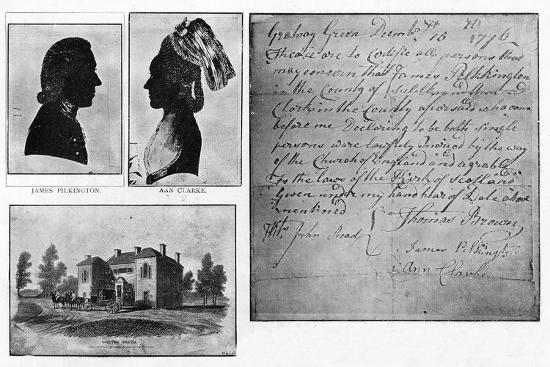 JAMES PILKINGTON.
ANN CLARKE.
GRETNA GREEN
Gretnay Green Decembr 16th 1776
These are to Certifie all persons that
may concern that James Pilkington
in the County of and Ann
Clark in the County aforesaid who came
before me Declaring to be both single
persons were lawfuly Joined by the way
of the Church of England and agreable
to the laws of the Kirk of Scotland
Given under my hand hear of Date above
mentioned
Thomas Brown
John Read
James Pilkington
Ann Clarke